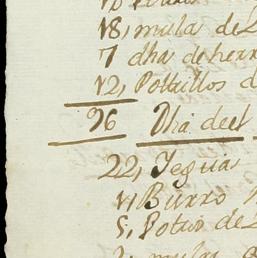 18, mula de
7 dha de herr
12, Potrillos d
96 Dha de el
22, Yegua
11 Burro
5, Potro de
2, mulas